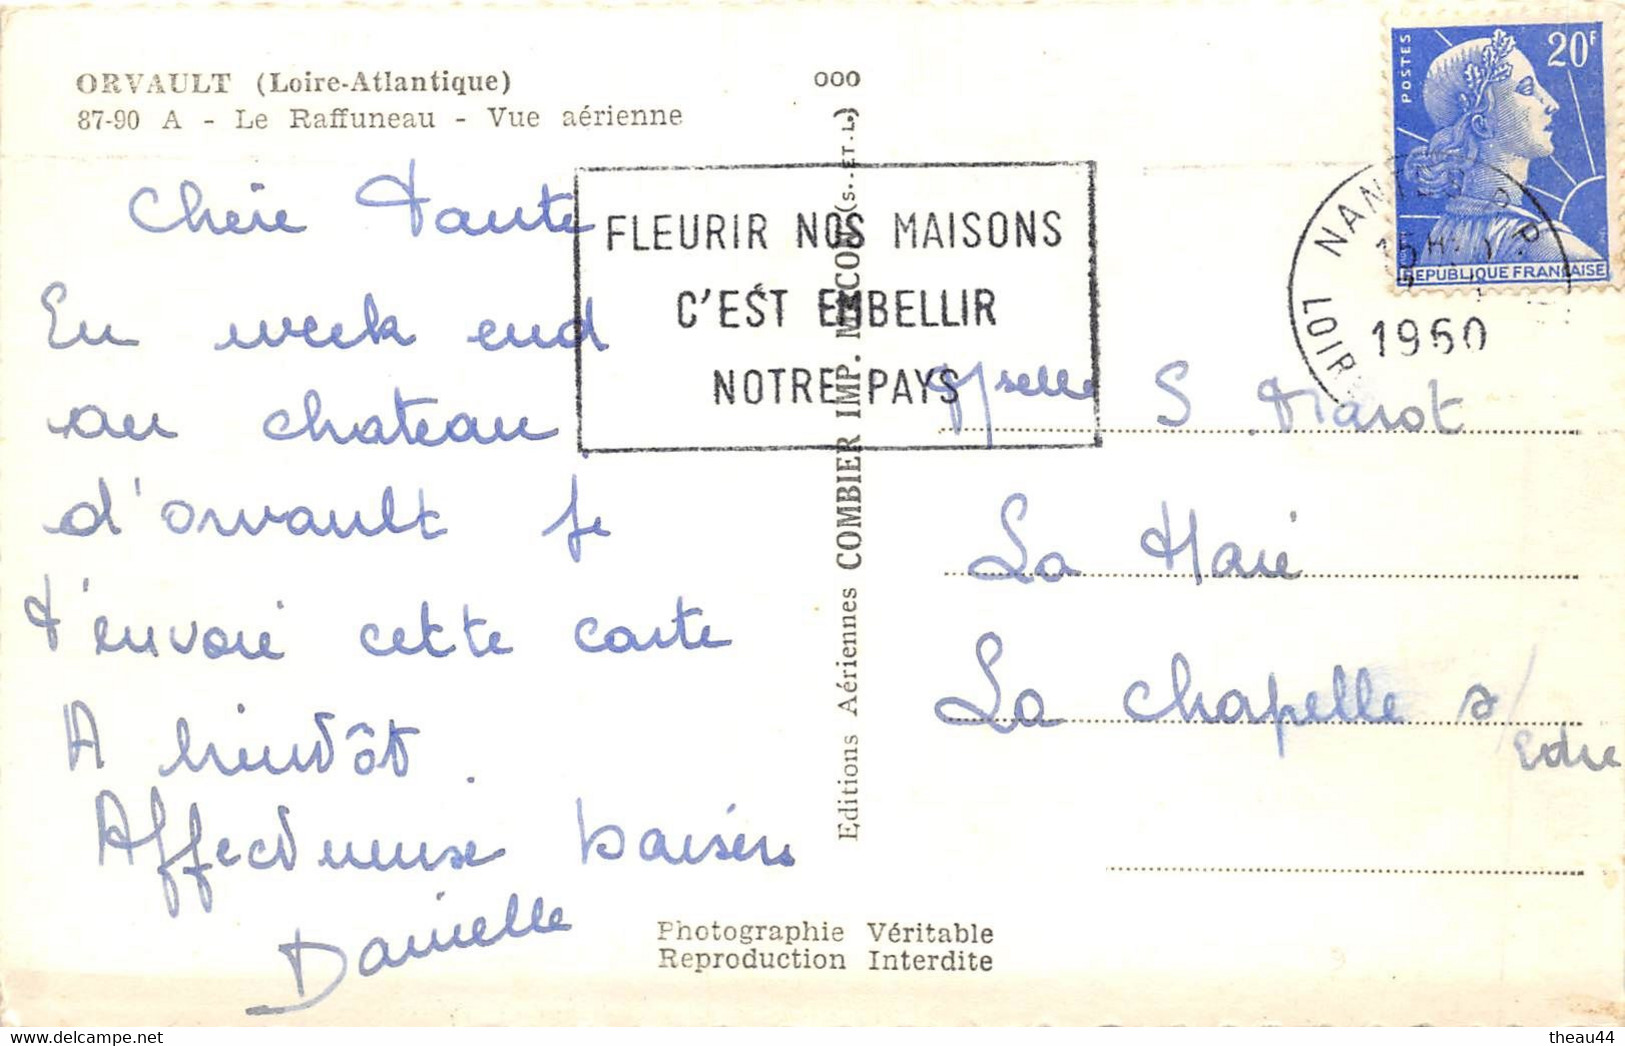 ORVAULT (Loire-Atlantique)
87-90 A - Le Raffuneau - Vue aérienne
Chère Tante
En week end
au chateau
d'orvault je
t'envoie cette carte
A bientôt.
Affectueuse baisers
Danielle
000
Editions Aériennes COMBIER IMP. MACON (S.-ET-L.)
FLEURIR NOS MAISONS
C'EST EMBELLIR
NOTRE PAYS
POSTES
20F
REPUBLIQUE FRANÇAISE
1960
Mselle S Marot
La Haie
La Chapelle s/
Edre
Photographie Véritable
Reproduction Interdite
theau44